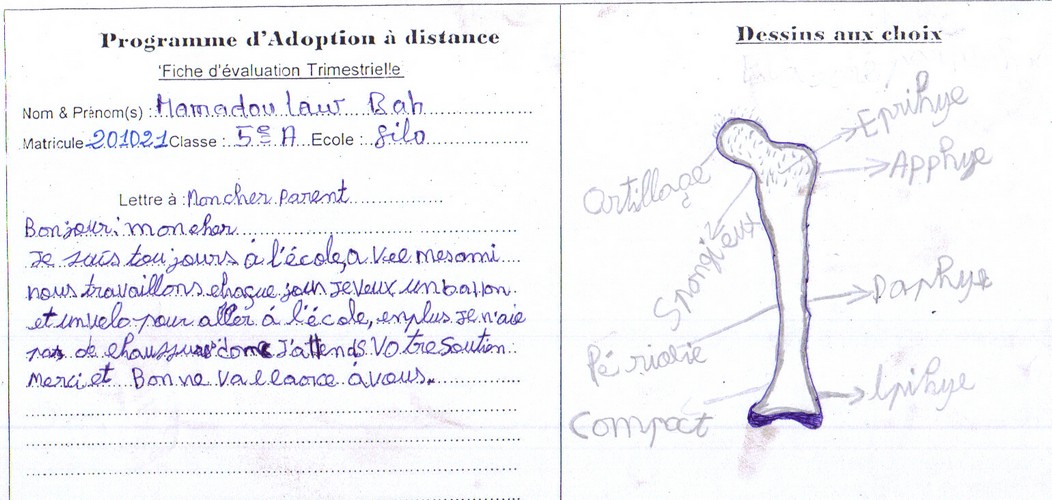 Programme d'Adoption à distance
Fiche d'évaluation Trimestrielle
Nom & Prénom(s) : Mamadou laur Bah
Matricule 201021 Classe : 5e A Ecole : filo
Lettre à : Mon cher parent
Bonjour: mon cher
Je suis toujours à l'école, a vee mes ami
nous travaillons chaque jour Je veux un ballon
et un velo pour aller à l'école, en plus Je n'aie
pas de chaussure donc J'attends Votre Soutien.
Merci et Bonne Vallaorce à vous.
Dessins aux choix
Epihye
Artillage
Apphye
Spongieux
Daphye
Périodie
Ipihye
Compact